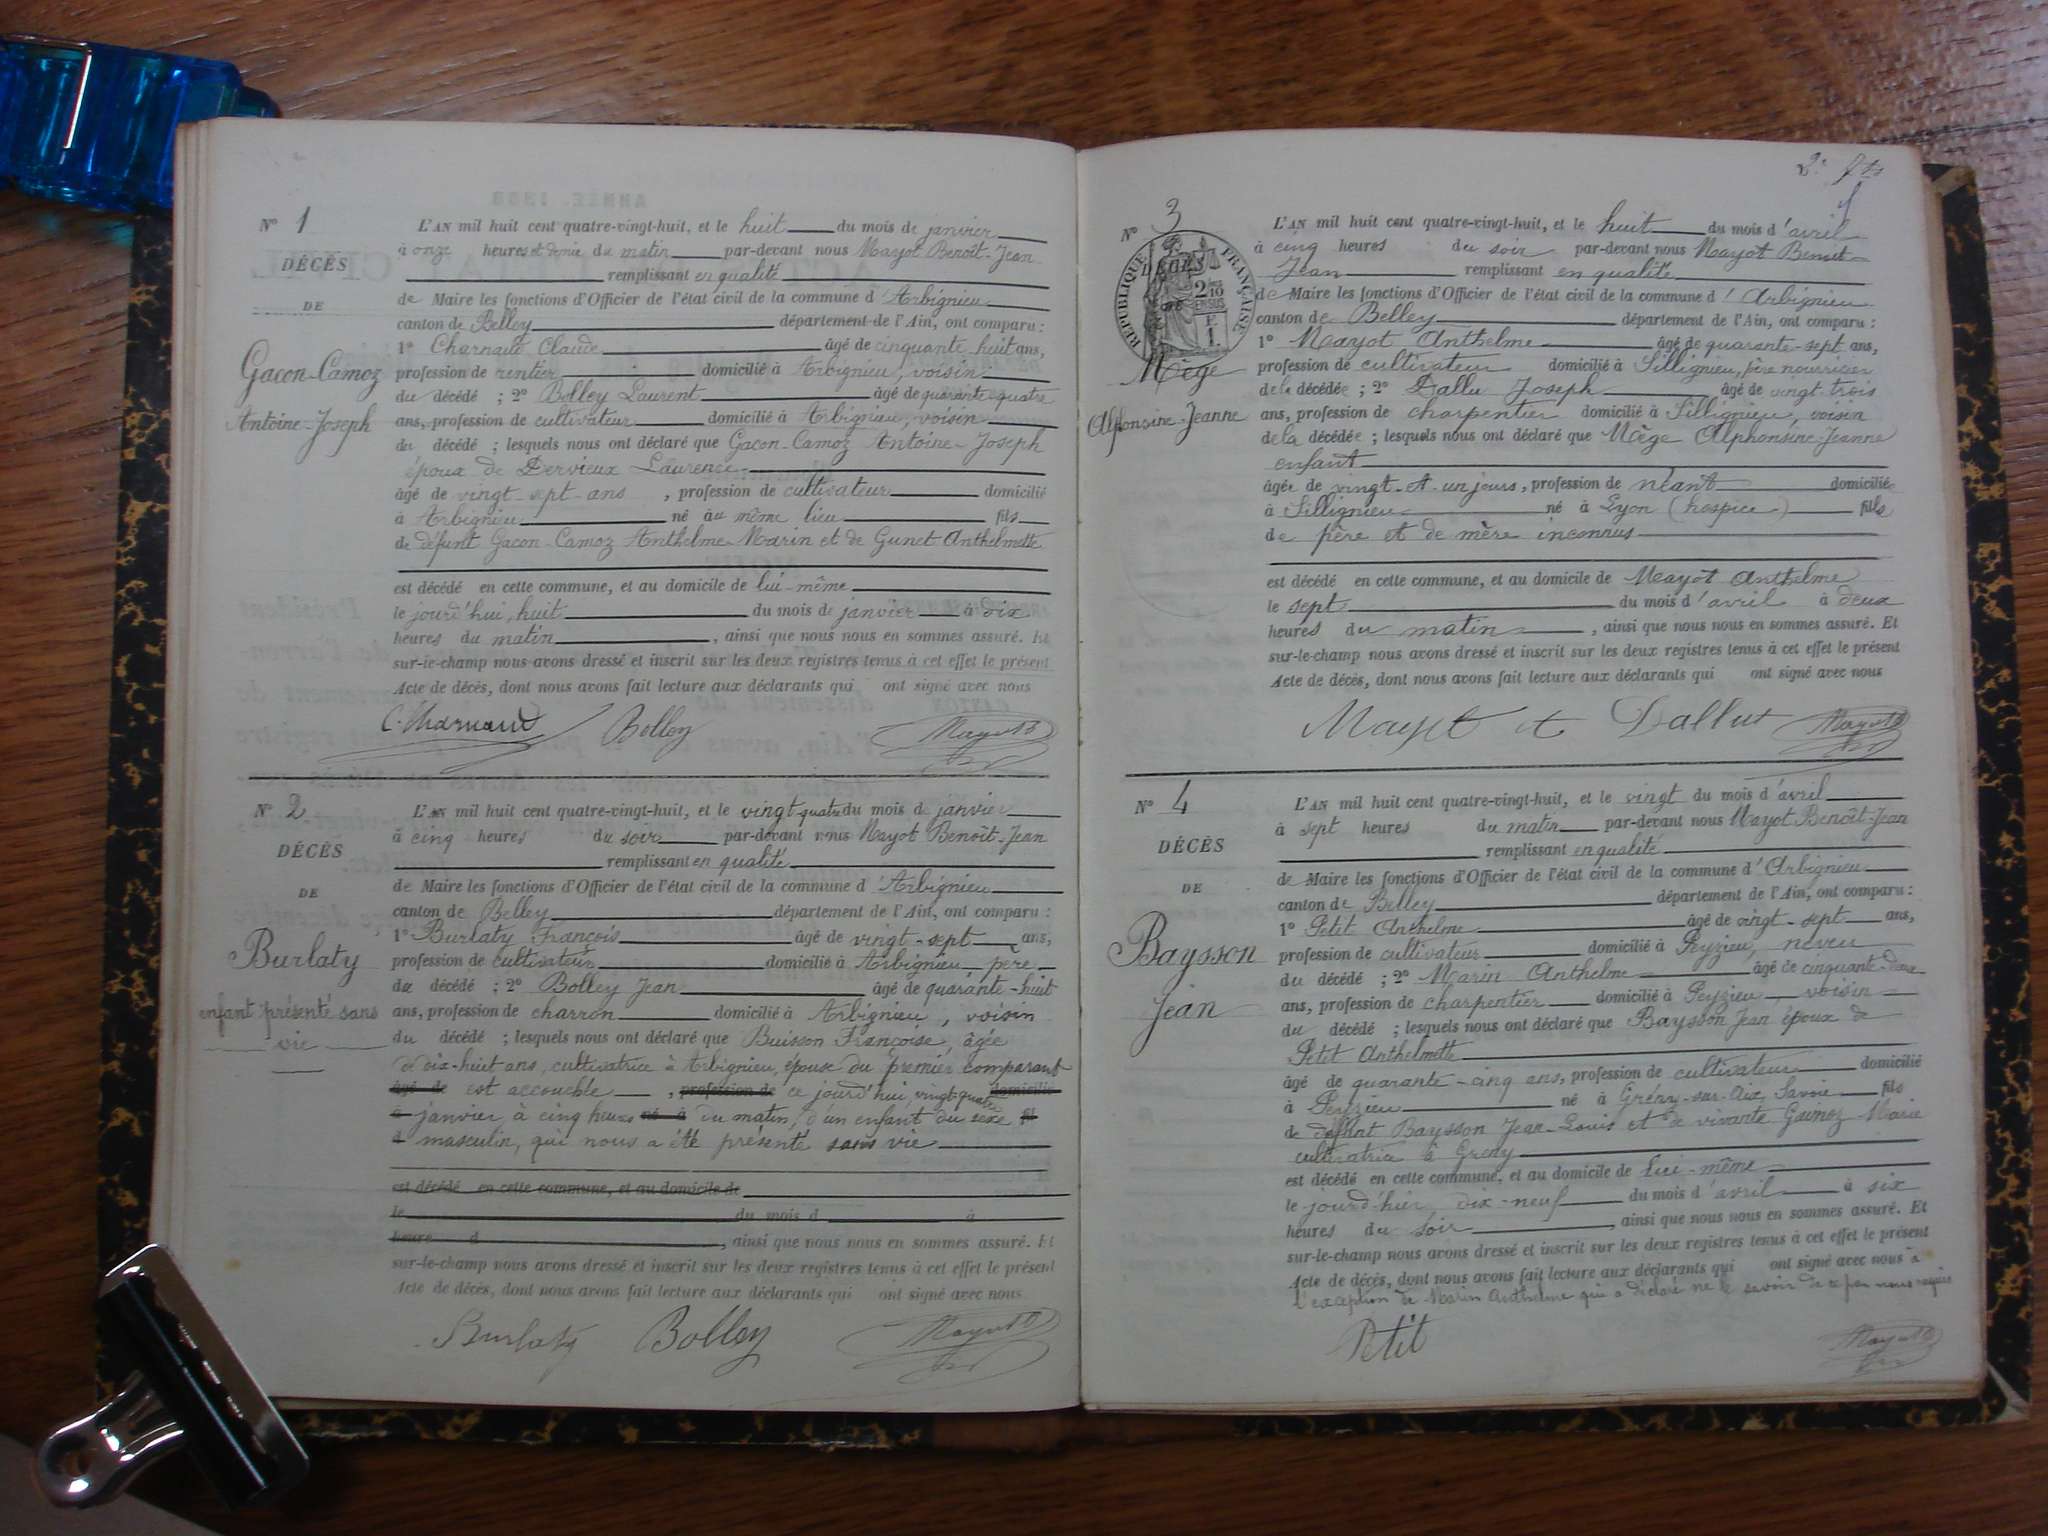 N° 1
DÉCÈS
DE
Gacon-Camoz
Antoine-Joseph
L'AN mil huit cent quatre-vingt-huit, et le huit du mois de janvier
à onze heures et demie du matin par-devant nous Mayot Benoît-Jean
remplissant en qualité
de Maire les fonctions d'Officier de l'état civil de la commune d'Arbignieu
canton de Belley département de l'Ain, ont comparu :
1° Charnaud Claude âgé de cinquante huit ans,
profession de rentier domicilié à Arbignieu, voisin
du décédé ; 2° Bolley Laurent âgé de quarante quatre
ans, profession de cultivateur domicilié à Arbignieu, voisin
du décédé ; lesquels nous ont déclaré que Gacon-Camoz Antoine-Joseph
époux de Dervieux Laurence
âgé de vingt-sept-ans, profession de cultivateur domicilié
à Arbignieu né au même lieu fils
de défunt Gacon-Camoz Anthelme-Marin et de Gunet Anthelmette
est décédé en cette commune, et au domicile de lui-même
le jourd'hui, huit du mois de janvier à dix
heures du matin, ainsi que nous nous en sommes assuré. Et
sur-le-champ nous avons dressé et inscrit sur les deux registres tenus à cet effet le présent
Acte de décès, dont nous avons fait lecture aux déclarants qui ont signé avec nous
C. Charnaud Bolley Mayot B
N° 2
DÉCÈS
DE
Burlaty
enfant présenté sans
vie
L'AN mil huit cent quatre-vingt-huit, et le vingt-quatre du mois de janvier
à cinq heures du soir par-devant nous Mayot Benoît-Jean
remplissant en qualité
de Maire les fonctions d'Officier de l'état civil de la commune d'Arbignieu
canton de Belley département de l'Ain, ont comparu :
1° Burlaty François âgé de vingt-sept ans,
profession de cultivateur domicilié à Arbignieu père
du décédé ; 2° Bolley Jean âgé de quarante-huit
ans, profession de charron domicilié à Arbignieu, voisin
du décédé ; lesquels nous ont déclaré que Buisson Françoise, âgée
de dix-huit ans, cultivatrice à Arbignieu, épouse du premier comparant
âgé de est accouchée, profession de ce jourd'hui, vingt-quatre domicilié
à janvier à cinq heures né à du matin, d'un enfant du sexe fil
d masculin, qui nous a été présenté sans vie
est décédé en cette commune, et au domicile de
le du mois d à
heure d, ainsi que nous nous en sommes assuré. Et
sur-le-champ nous avons dressé et inscrit sur les deux registres tenus à cet effet le présent
Acte de décès, dont nous avons fait lecture aux déclarants qui ont signé avec nous
Burlaty Bolley Mayot B
2e
N° 3
DÉCÈS
RÉPUBLIQUE FRANÇAISE
Mège
Alfonsine-Jeanne
L'AN mil huit cent quatre-vingt-huit, et le huit du mois d'avril
à cinq heures du soir par-devant nous Mayot Benoit
Jean remplissant en qualité
de Maire les fonctions d'Officier de l'état civil de la commune d'Arbignieu
canton de Belley département de l'Ain, ont comparu :
1° Mayot Anthelme âgé de quarante-sept ans,
profession de cultivateur domicilié à Sillignieu, père nourricier
de la décédée ; 2° Dallu Joseph âgé de vingt trois
ans, profession de charpentier domicilié à Sillignieu, voisin
de la décédée ; lesquels nous ont déclaré que Mège Alphonsine-Jeanne
enfant
âgée de vingt-et-un jours, profession de néant domicilié
à Sillignieu né à Lyon (hospice) fille
de père et de mère inconnus
est décédé en cette commune, et au domicile de Mayot Anthelme
le sept du mois d'avril à deux
heures du matin, ainsi que nous nous en sommes assuré. Et
sur-le-champ nous avons dressé et inscrit sur les deux registres tenus à cet effet le présent
Acte de décès, dont nous avons fait lecture aux déclarants qui ont signé avec nous
Mayot A Dallut Mayot B
N° 4
DÉCÈS
DE
Baysson
Jean
L'AN mil huit cent quatre-vingt-huit, et le vingt du mois d'avril
à sept heures du matin par-devant nous Mayot Benoît-Jean
remplissant en qualité
de Maire les fonctions d'Officier de l'état civil de la commune d'Arbignieu
canton de Belley département de l'Ain, ont comparu :
1° Petit Anthelme âgé de vingt-sept ans,
profession de cultivateur domicilié à Peyzieu, neveu
du décédé ; 2° Marin Anthelme âgé de cinquante-deux
ans, profession de charpentier domicilié à Peyzieu, voisin
du décédé ; lesquels nous ont déclaré que Baysson Jean époux de
Petit Anthelmette
âgé de quarante-cinq ans, profession de cultivateur domicilié
à Peyzieu né à Grésy-sur-Aix, Savoie fils
de défunt Baysson Jean-Louis et de vivante Gumoz Marie
cultivatrice à Grésy
est décédé en cette commune, et au domicile de lui-même
le jourd'hier dix-neuf du mois d'avril à six
heures du soir, ainsi que nous nous en sommes assuré. Et
sur-le-champ nous avons dressé et inscrit sur les deux registres tenus à cet effet le présent
Acte de décès, dont nous avons fait lecture aux déclarants qui ont signé avec nous à
l'exception de Marin Anthelme qui a déclaré ne le savoir de ce par nous requis
Petit Mayot B